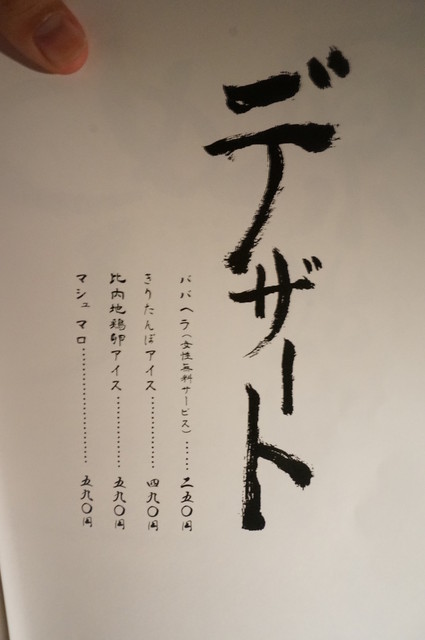 デザート
ババヘラ(女性無料サービス)……二五〇円
きりたんぽアイス……………四九〇円
比内地鶏卵アイス……………五九〇円
マシュマロ……………………五九〇円